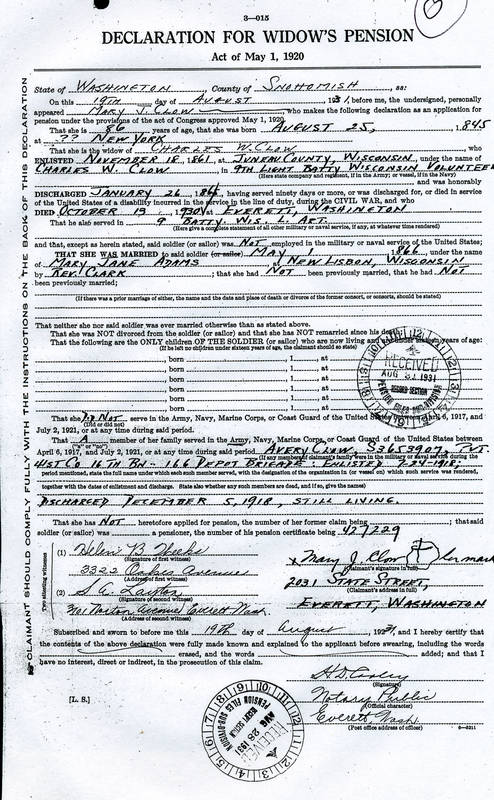 3—015
DECLARATION FOR WIDOW'S PENSION
Act of May 1, 1920
CLAIMANT SHOULD COMPLY FULLY WITH THE INSTRUCTIONS ON THE BACK OF THIS DECLARATION
State of WASHINGTON, County of SNOHOMISH, ss:
On this 19TH day of AUGUST, 1931, before me, the undersigned, personally
appeared MARY J. CLOW, who makes the following declaration as an application for
pension under the provisions of the act of Congress approved May 1, 1920.
That she is 86 years of age, that she was born AUGUST 25, 1845
at ?? NEW YORK
That she is the widow of CHARLES W. CLOW, who
ENLISTED NOVEMBER 18, 1861, at JUNEAU COUNTY, WISCONSIN, under the name of
CHARLES W. CLOW, in 9TH LIGHT BATTY WISCONSIN VOLUNTEER
(Here state company and regiment, if in the Army; or vessel, if in the Navy)
and was honorably
DISCHARGED JANUARY 26, 1864, having served ninety days or more, or was discharged for, or died in service
of the United States of a disability incurred in the service in the line of duty, during the CIVIL WAR, and who
DIED OCTOBER 13, 1930, at EVERETT, WASHINGTON
That he also served in 9 BATTY. WIS. L. ART.
(Here give a complete statement of all other military or naval service, if any, at whatever time rendered)
and that, except as herein stated, said soldier (or sailor) was NOT employed in the military or naval service of the United States;
THAT SHE WAS MARRIED to said soldier (or sailor) MAY 1, 1866, under the name
of MARY JANE ADAMS, at NEW LISBON, WISCONSIN
by REV. CLARK; that she had NOT been previously married, that he had NOT
been previously married;
(If there was a prior marriage of either, the name and the date and place of death or divorce of the former consort, or consorts, should be stated)
That neither she nor said soldier was ever married otherwise than as stated above.
That she was NOT divorced from the soldier (or sailor) and that she has NOT remarried since his death.
That the following are the ONLY children OF THE SOLDIER (or sailor) who are now living and under sixteen years of age:
(If he left no children under sixteen years of age, the claimant should so state)
, born , 1 , at
, born , 1 , at
, born , 1 , at
, born , 1 , at
, born , 1 , at
RECEIVED
AUG 31 1931
RECORD SECTION
That she DID NOT serve in the Army, Navy, Marine Corps, or Coast Guard of the United States between April 6, 1917, and
(Did or did not)
July 2, 1921, or at any time during said period.
That A member of her family served in the Army, Navy, Marine Corps, or Coast Guard of the United States between
("a" or "no")
April 6, 1917, and July 2, 1921, or at any time during said period. AVERY CLOW, PVT.
(If any member of claimant's family were in the military or naval service during the
41ST CO 16 TH BN – 166 DEPOT BRIGADE. ENLISTED 7-24-1918;
period mentioned, state the full name under which each such member served, with the designation of the organization in (or vessel on) which such service was rendered,
together with the dates of enlistment and discharge. State also whether any such members are dead, and if so, give the names)
DISCHARGED DECEMBER 5, 1918, STILL LIVING.
That she has NOT heretofore applied for pension, the number of her former claim being ; that said
soldier (or sailor) was a pensioner, the number of his pension certificate being 427229
Two attesting witnesses
(1) Helen B. Weeks
(Signature of first witness)
3322 Oakes Avenue
(Address of first witness)
(2) S. A. Layton
(Signature of second witness)
3101 Norton Avenue Everett Wash
(Address of second witness)
x Mary J. Clow her mark
(Claimant's signature in full)
2031 STATE STREET,
(Claimant's address in full)
EVERETT, WASHINGTON
Subscribed and sworn to before me this 19th day of August, 1931, and I hereby certify that
the contents of the above declaration were fully made known and explained to the applicant before swearing, including the words
erased, and the words added; and that I
have no interest, direct or indirect, in the prosecution of this claim.
(Signature)
Notary Public
(Official character)
Everett, Wash.
(Post office address of officer)
[L. S.]
RECEIVED
AUG 28 1931